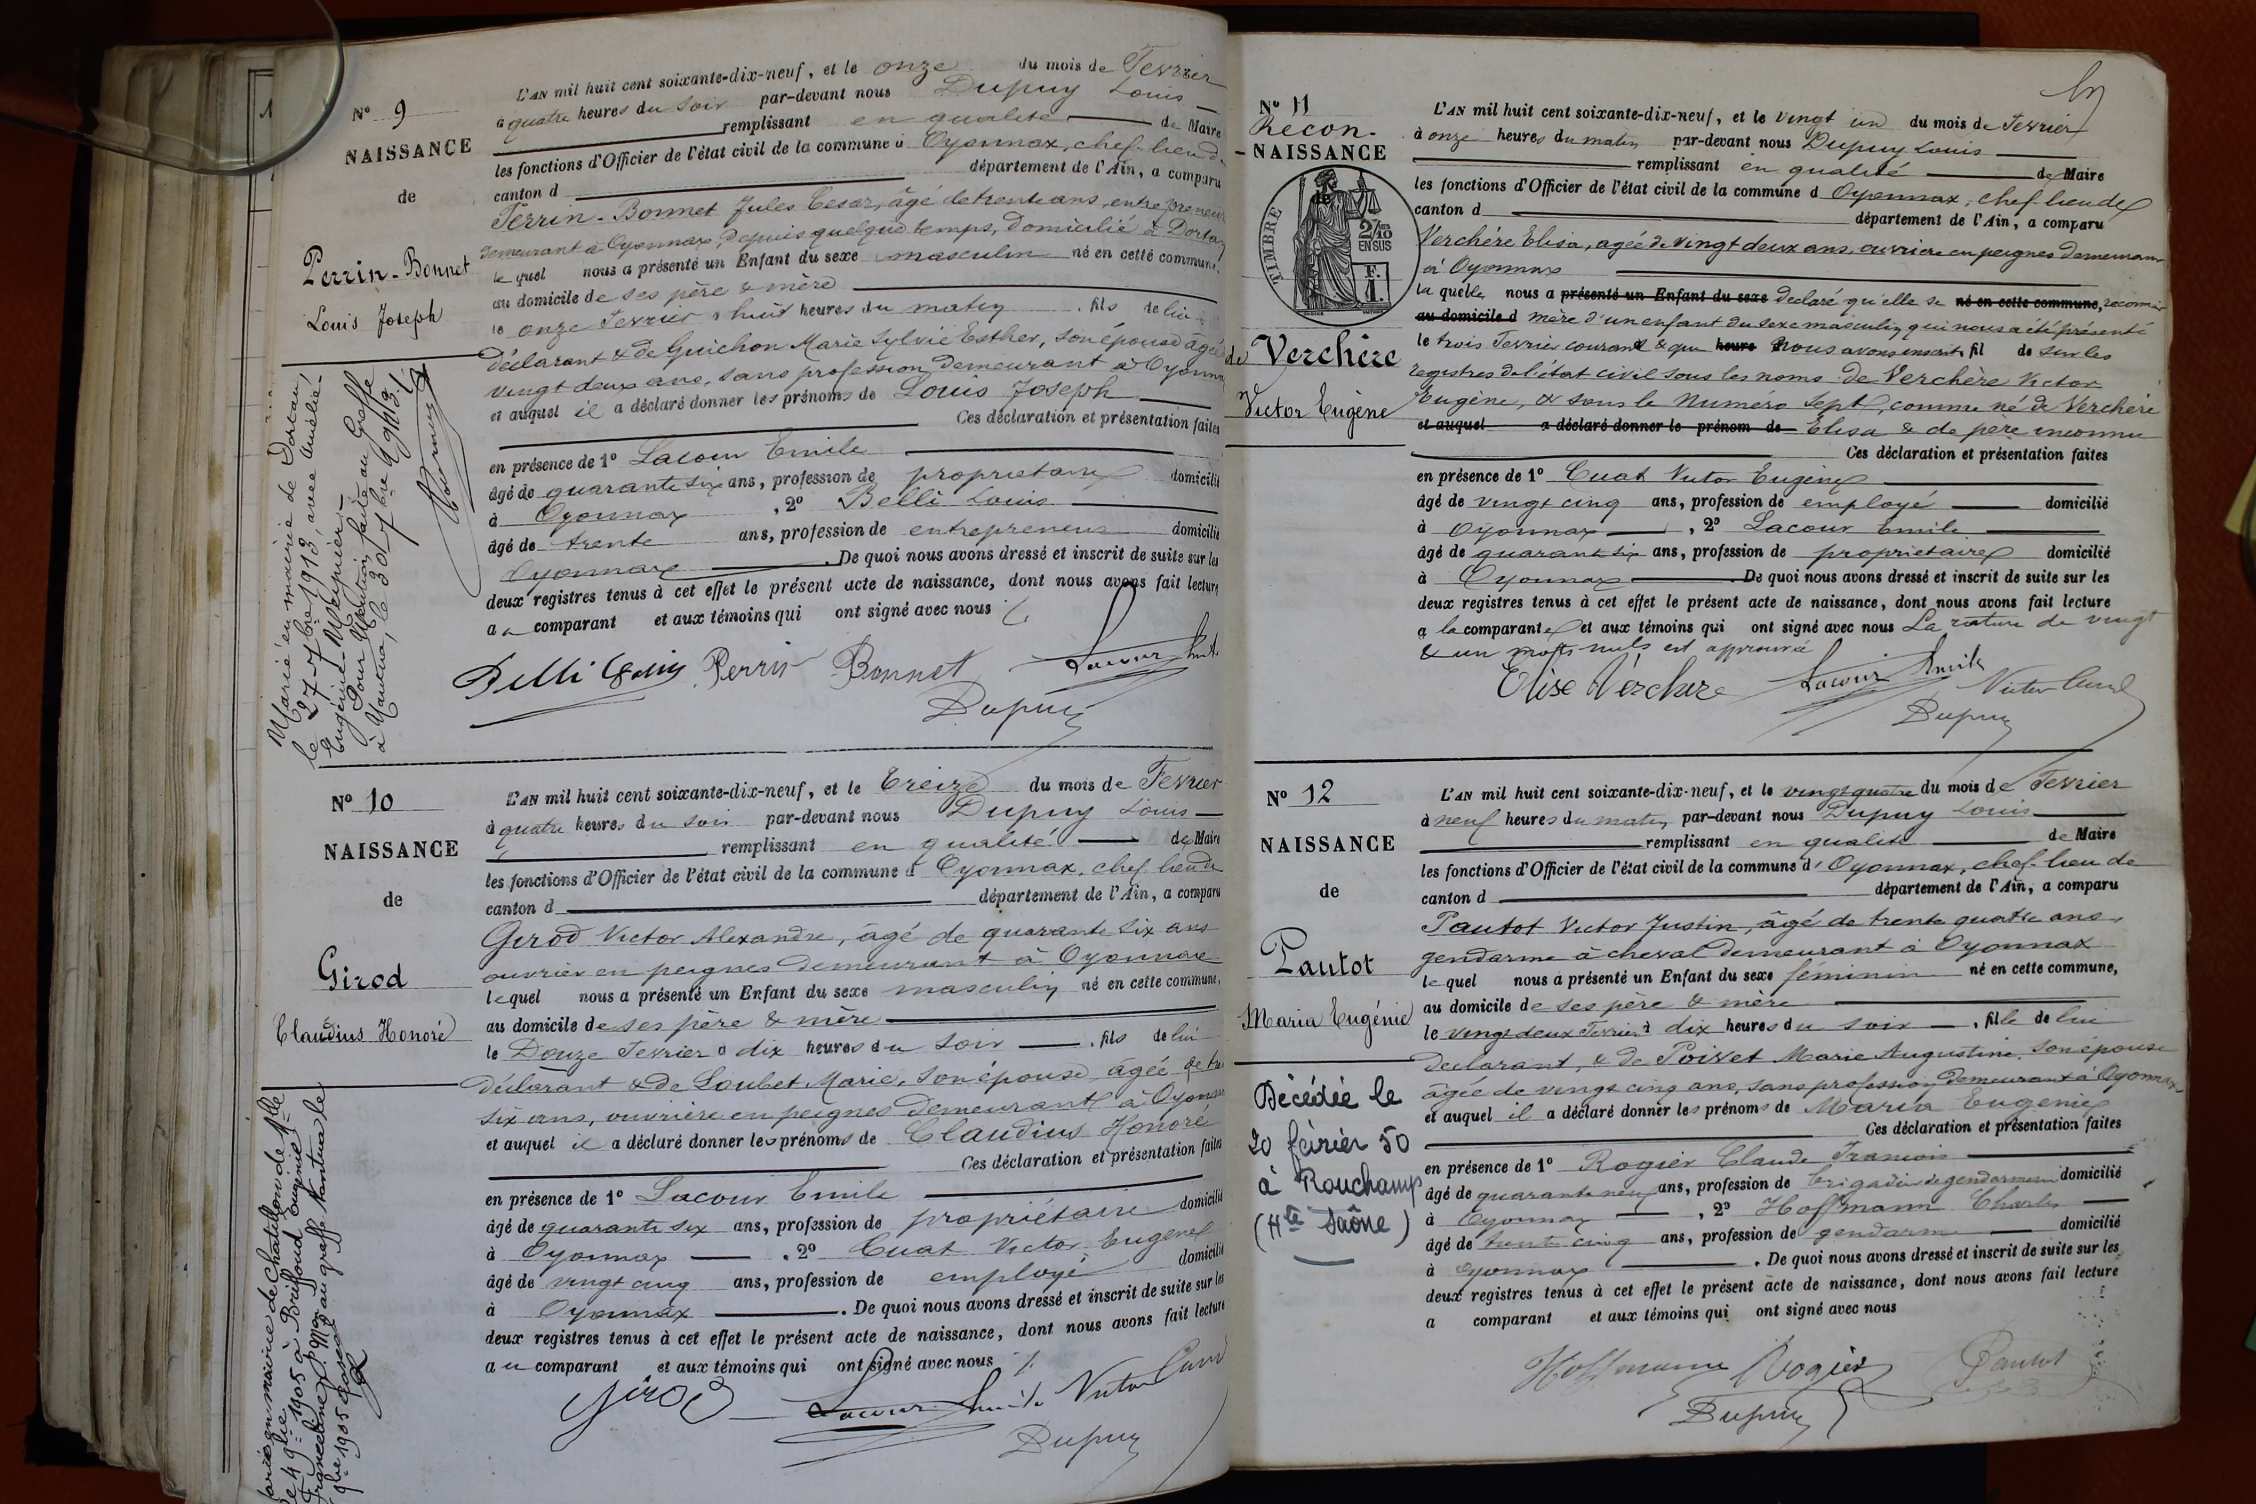 N° 9
NAISSANCE
de
Perrin-Bonnet
Louis Joseph
L'AN mil huit cent soixante-dix-neuf, et le onze du mois de Fevrier
à quatre heures du soir par-devant nous Dupuy Louis
remplissant en qualité de Maire
les fonctions d'Officier de l'état civil de la commune d Oyonnax, chef-lieu de
canton d département de l'Ain, a comparu
Perrin-Bonnet Jules Cesar, âgé de trente ans, entrepreneur
demeurant à Oyonnax, depuis quelque temps, domicilié à Dortan
le quel nous a présenté un Enfant du sexe masculin né en cette commune,
au domicile de ses père & mère
le onze Fevrier à huit heures du matin, fils de lui
déclarant & de Guichon Marie Sylvie Esther, son épouse âgée
vingt deux ans, sans profession demeurant à Oyonnax
et auquel il a déclaré donner les prénoms de Louis Joseph
Ces déclaration et présentation faites
en présence de 1° Lacour Emile
âgé de quarante six ans, profession de proprietaire domicilié
à Oyonnax, 2° Belli Louis
âgé de trente ans, profession de entrepreneur domicilié
Oyonnax. De quoi nous avons dressé et inscrit de suite sur les
deux registres tenus à cet effet le présent acte de naissance, dont nous avons fait lecture
au comparant et aux témoins qui ont signé avec nous
Belli Louis Perrin Bonnet Lacour Emile
Dupuy
Marié en mairie de Dortan
le 27 7bre 1913, avec Amélie
Eugénie
Pour Mention faite au Greffe
à Nantua, le 30 7bre 1913
N° 10
NAISSANCE
de
Girod
Claudius Honoré
L'AN mil huit cent soixante-dix-neuf, et le treize du mois de Fevrier
à quatre heures du soir par-devant nous Dupuy Louis
remplissant en qualité de Maire
les fonctions d'Officier de l'état civil de la commune d Oyonnax, chef-lieu de
canton d département de l'Ain, a comparu
Girod Victor Alexandre, âgé de quarante six ans
ouvrier en peignes demeurant à Oyonnax
lequel nous a présenté un Enfant du sexe masculin né en cette commune,
au domicile de ses père & mère
le Douze Fevrier à dix heures du soir, fils de lui
déclarant & de Loubet Marie, son épouse âgée de
six ans, ouvrière en peignes demeurant à Oyonnax
et auquel il a déclaré donner les prénoms de Claudius Honoré
Ces déclaration et présentation faites
en présence de 1° Lacour Emile
âgé de quarante six ans, profession de propriétaire domicilié
à Oyonnax, 2° Cuat Victor Eugene
âgé de vingt cinq ans, profession de employé domicilié
à Oyonnax. De quoi nous avons dressé et inscrit de suite sur les
deux registres tenus à cet effet le présent acte de naissance, dont nous avons fait lecture
au comparant et aux témoins qui ont signé avec nous
Girod Lacour Emile Victor Cuat
Dupuy
Marié en mairie de Chatillon de Mlle
le 4 9bre 1905 à Briffoud Eugénie
Franceline. Mon au greffe Nantua le
9bre 1905
N° 11
Recon-
NAISSANCE
de
TIMBRE
2/10
EN SUS
F.
1.
de Verchère
Victor Eugène
L'AN mil huit cent soixante-dix-neuf, et le vingt un du mois de Fevrier
à onze heures du matin par-devant nous Dupuy Louis
remplissant en qualité de Maire
les fonctions d'Officier de l'état civil de la commune d Oyonnax, chef-lieu de
canton d département de l'Ain, a comparu
Verchère Elisa, agée de vingt deux ans, ouvriere en peignes demeurant
à Oyonnax
la quelle nous a présenté un Enfant du sexe declaré qu'elle se né en cette commune, reconnait
au domicile d mère d'un enfant du sexe masculin qui nous a été présenté
le trois Fevrier courant & que heure nous avons inscrit fil de sur les
registres de l'état civil sous les noms de Verchère Victor
Eugène, & sous le Numéro Sept, comme né de Verchère
et auquel a déclaré donner le prénom de Elisa & de père inconnu
Ces déclaration et présentation faites
en présence de 1° Cuat Victor Eugène
âgé de vingt cinq ans, profession de employé domicilié
à Oyonnax, 2° Lacour Emile
âgé de quarante six ans, profession de proprietaire domicilié
à Oyonnax. De quoi nous avons dressé et inscrit de suite sur les
deux registres tenus à cet effet le présent acte de naissance, dont nous avons fait lecture
a la comparante et aux témoins qui ont signé avec nous La rature de vingt
& un mots nuls est approuvé
Elise Verchere Lacour Emile Victor Cuat
Dupuy
N° 12
NAISSANCE
de
Pautot
Maria Eugénie
Décédée le
20 février 50
à Ronchamp
(Hte Saône)
L'AN mil huit cent soixante-dix-neuf, et le vingt quatre du mois de Fevrier
à neuf heures du matin par-devant nous Dupuy Louis
remplissant en qualité de Maire
les fonctions d'Officier de l'état civil de la commune d'Oyonnax, chef-lieu de
canton d département de l'Ain, a comparu
Pautot Victor Justin, âgé de trente quatre ans,
gendarme à cheval demeurant à Oyonnax
le quel nous a présenté un Enfant du sexe féminin né en cette commune,
au domicile de ses père & mère
le vingt deux Fevrier à dix heures du soir, fille de lui
declarant, & de Poivet Marie Augustine, son épouse
âgée de vingt cinq ans, sans profession demeurant à Oyonnax
et auquel il a déclaré donner les prénoms de Maria Eugenie
Ces déclaration et présentation faites
en présence de 1° Rogier Claude Francois
âgé de quarante neuf ans, profession de brigadier de gendarmerie domicilié
à Oyonnax, 2° Hoffmann Charles
âgé de trente cinq ans, profession de gendarme domicilié
à Oyonnax. De quoi nous avons dressé et inscrit de suite sur les
deux registres tenus à cet effet le présent acte de naissance, dont nous avons fait lecture
a comparant et aux témoins qui ont signé avec nous
Hoffmann Rogier Pautot
Dupuy